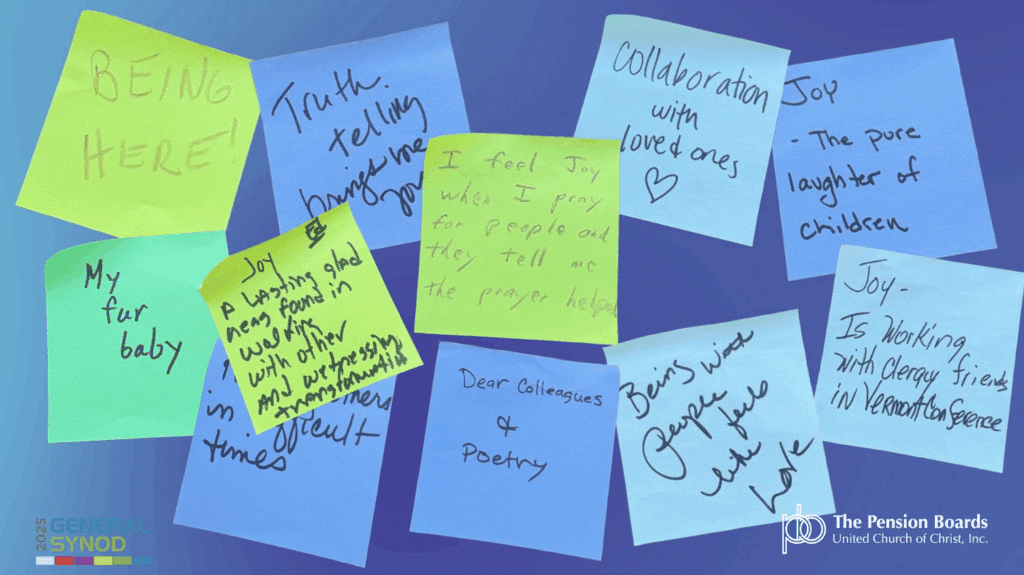 BEING
HERE!
Truth.
telling
brings me
joy
Collaboration
with
loved ones
Joy
- The pure
laughter of
children
I feel Joy
when I pray
for people and
they tell me
the prayer helped
My
fur
baby
Joy
A LASTING glad
ness found in
walking
with other
And witnessing
transformation
in difficult
times
Dear Colleagues
&
Poetry
Being with
people
feels
like
Love
Joy -
Is Working
with Clergy friends
in Vermont Conference
2025
GENERAL
SYNOD
pb
The Pension Boards
United Church of Christ, Inc.